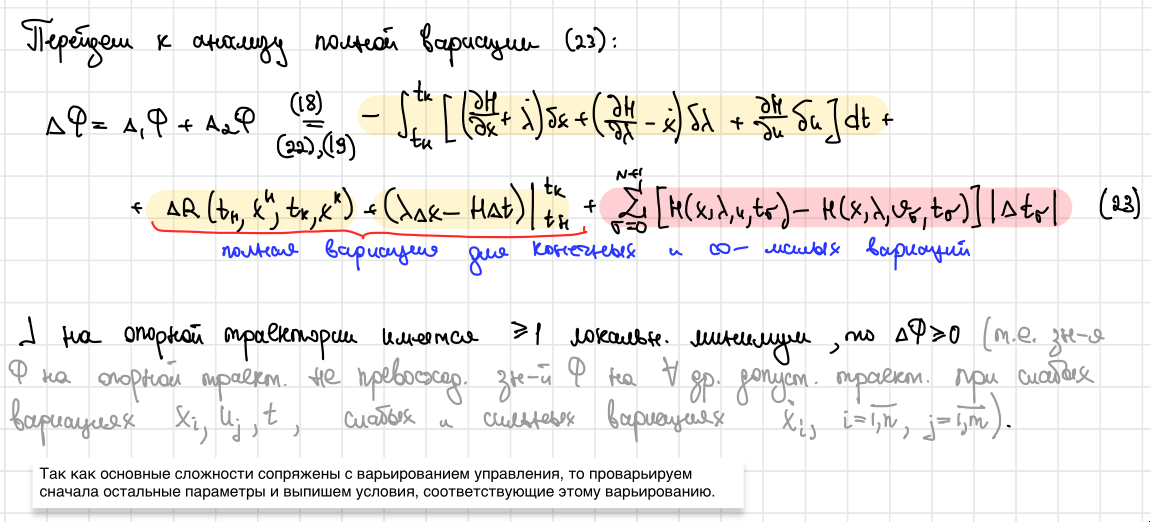 Перейдем к анализу полной вариации (23):
ΔΦ = Δ₁Φ + Δ₂Φ (18) = (22),(19) − ∫_{tн}^{tк} [(∂H/∂x + λ̇)δx + (∂H/∂λ − ẋ)δλ + ∂H/∂u δu] dt +
+ ΔR(tн, xᴴ, tк, xᴷ) + (λΔx − HΔt)|_{tн}^{tк} + Σ_{σ=0}^{N+1} [H(x,λ,u,tσ) − H(x,λ,υσ,tσ)] |Δtσ| (23)
полная вариация для конечных и ∞− малых вариаций
] на опорной траектории имеется ≥1 локальн. минимум, то ΔΦ ≥ 0 (т.е. зн-я
Φ на опорной траект. не превосход. зн-й Φ на ∀ др. допуст. траект. при слабых
вариациях xᵢ, uⱼ, t, слабых и сильных вариациях ẋᵢ, i=1,n, j=1,m).
Так как основные сложности сопряжены с варьированием управления, то проварьируем
сначала остальные параметры и выпишем условия, соответствующие этому варьированию.